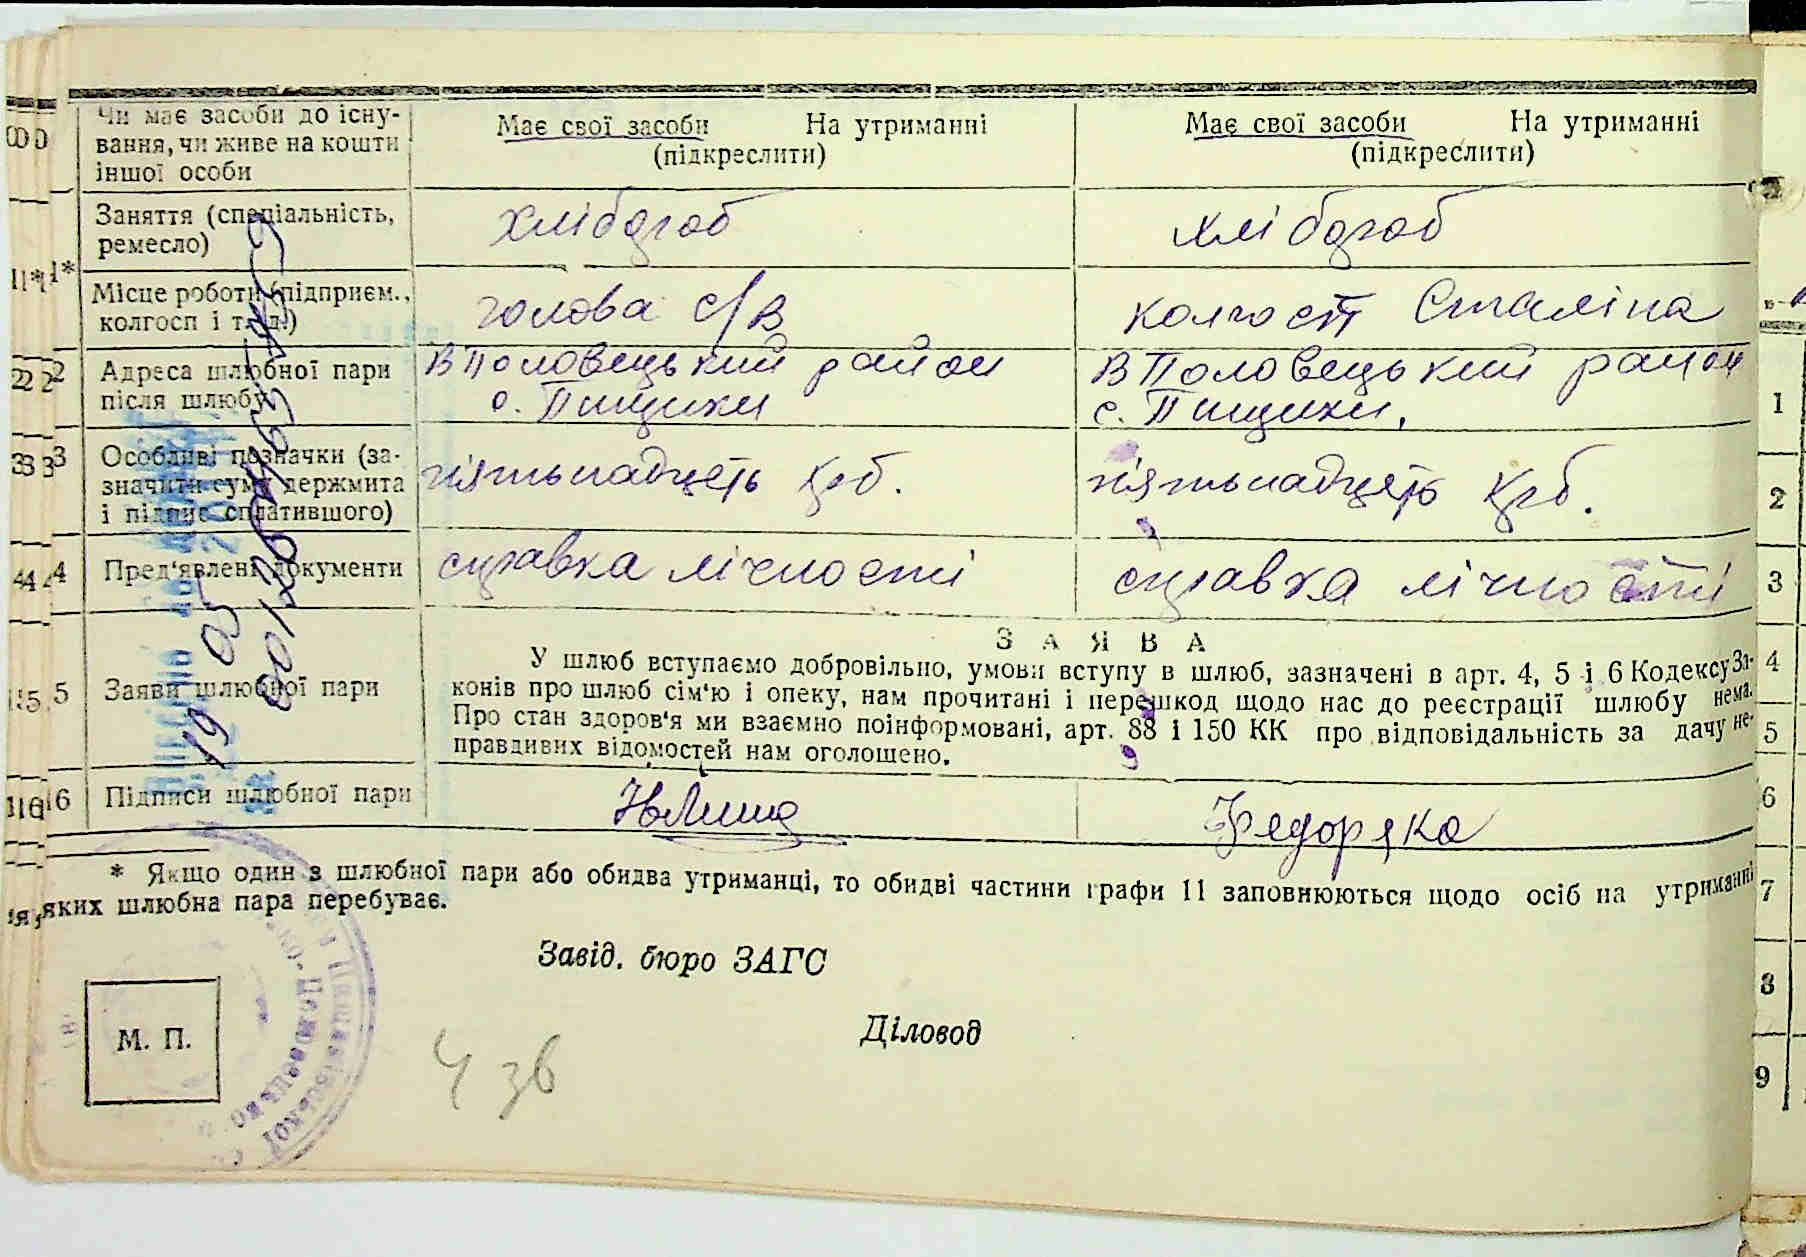 Чи має засоби до існу-
вання, чи живе на кошти
іншої особи
Має свої засоби На утриманні
(підкреслити)
Має свої засоби На утриманні
(підкреслити)
Заняття (спеціальність,
ремесло)
хлібороб
хлібороб
11*
Місце роботи (підприєм.,
колгосп і т. д.)
голова с/в
колгосп Сталіна
12
Адреса шлюбної пари
після шлюбу
В Половецький район
с. Пищики
В Половецький район
с. Пищики,
13
Особливі позначки (за-
значити суму держмита
і підпис сплатившого)
п'ятьнадцеть крб.
п'ятьнадцеть крб.
14
Пред'явлені документи
справка лічності
справка лічності
15
Заяви шлюбної пари
ЗАЯВА
У шлюб вступаємо добровільно, умови вступу в шлюб, зазначені в арт. 4, 5 і 6 Кодексу За-
конів про шлюб сім'ю і опеку, нам прочитані і перешкод щодо нас до реєстрації шлюбу нема.
Про стан здоров'я ми взаємно поінформовані, арт. 88 і 150 КК про відповідальність за дачу не-
правдивих відомостей нам оголошено.
16
Підписи шлюбної пари
Федоряка
* Якщо один з шлюбної пари або обидва утриманці, то обидві частини графи 11 заповнюються щодо осіб на утриманні
яких шлюбна пара перебуває.
Завід. бюро ЗАГС
Діловод
М. П.
4 зв
1
2
3
4
5
6
7
8
9